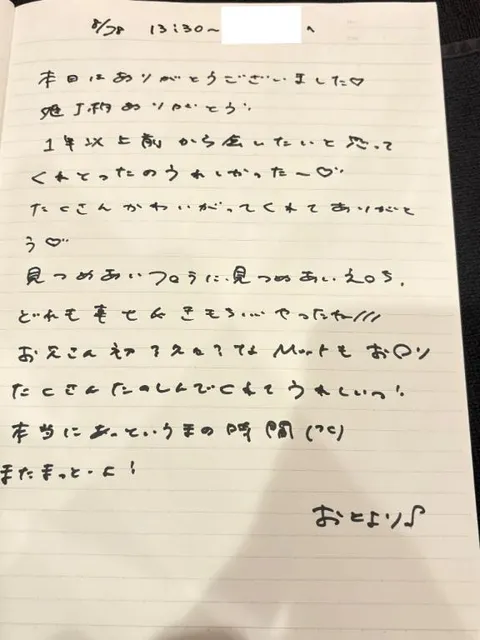 8/28 13:30~ へ
本日はありがとうございました♡
ありがとう!
1年以上前から会いたいと思って
くれとったのうれしかった〜♡
たくさんかわいがってくれてありがと
う♡
見つめあいフロうに、見つめあいえ〇ち、
どれも きもちい… やったね///
お兄さん も お〇り
たくさんたのしんでくれてうれしいっ!
本当にあっというまの時間
またまっとーよ!
おとより♪